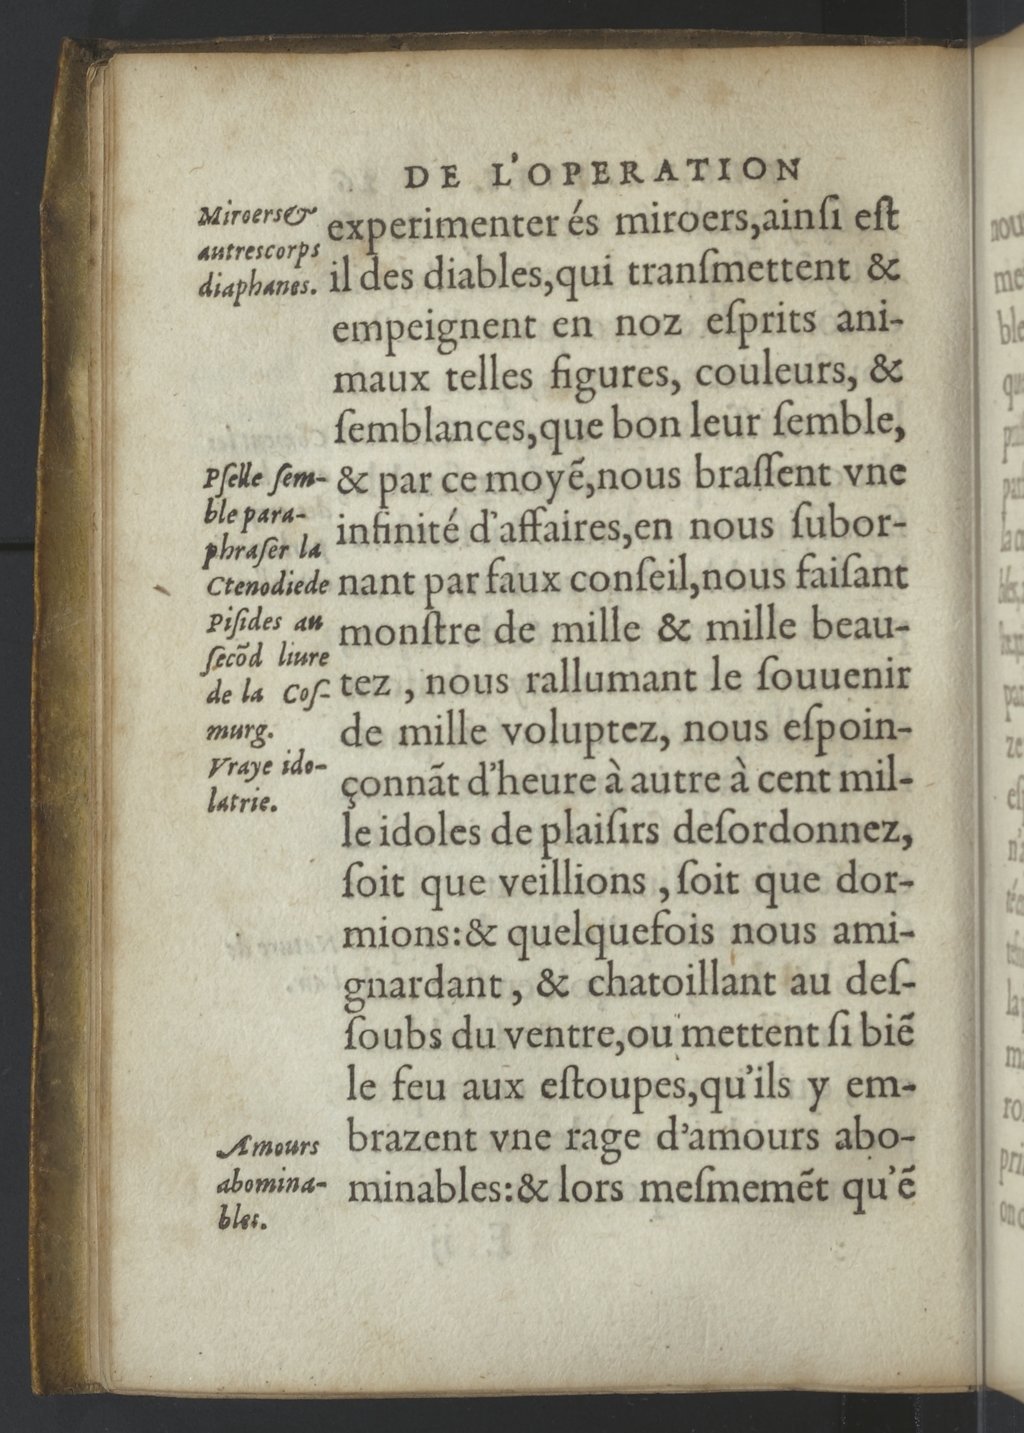 DE L'OPERATION
Miroers&
autrescorps
diaphanes.
experimenter és miroers,ainſi eſt
il des diables,qui tranſmettent &
empeignent en noz eſprits ani-
maux telles figures, couleurs, &
ſemblances,que bon leur ſemble,
& par ce moyẽ,nous braſſent vne
infinité d'affaires,en nous ſubor-
nant par faux conſeil,nous faiſant
monſtre de mille & mille beau-
tez , nous rallumant le ſouuenir
de mille voluptez, nous eſpoin-
çonnãt d'heure à autre à cent mil-
le idoles de plaiſirs deſordonnez,
ſoit que veillions , ſoit que dor-
mions:& quelquefois nous ami-
gnardant , & chatoillant au deſ-
ſoubs du ventre,ou mettent ſi biẽ
le feu aux eſtoupes,qu'ils y em-
brazent vne rage d'amours abo-
minables:& lors meſmemẽt qu'ẽ
Pſelle ſem-
ble para-
phraſer la
Ctenodiede
Piſides au
ſecõd liure
de la Coſ-
murg.
Vraye ido-
latrie.
Amours
abomina-
bles.